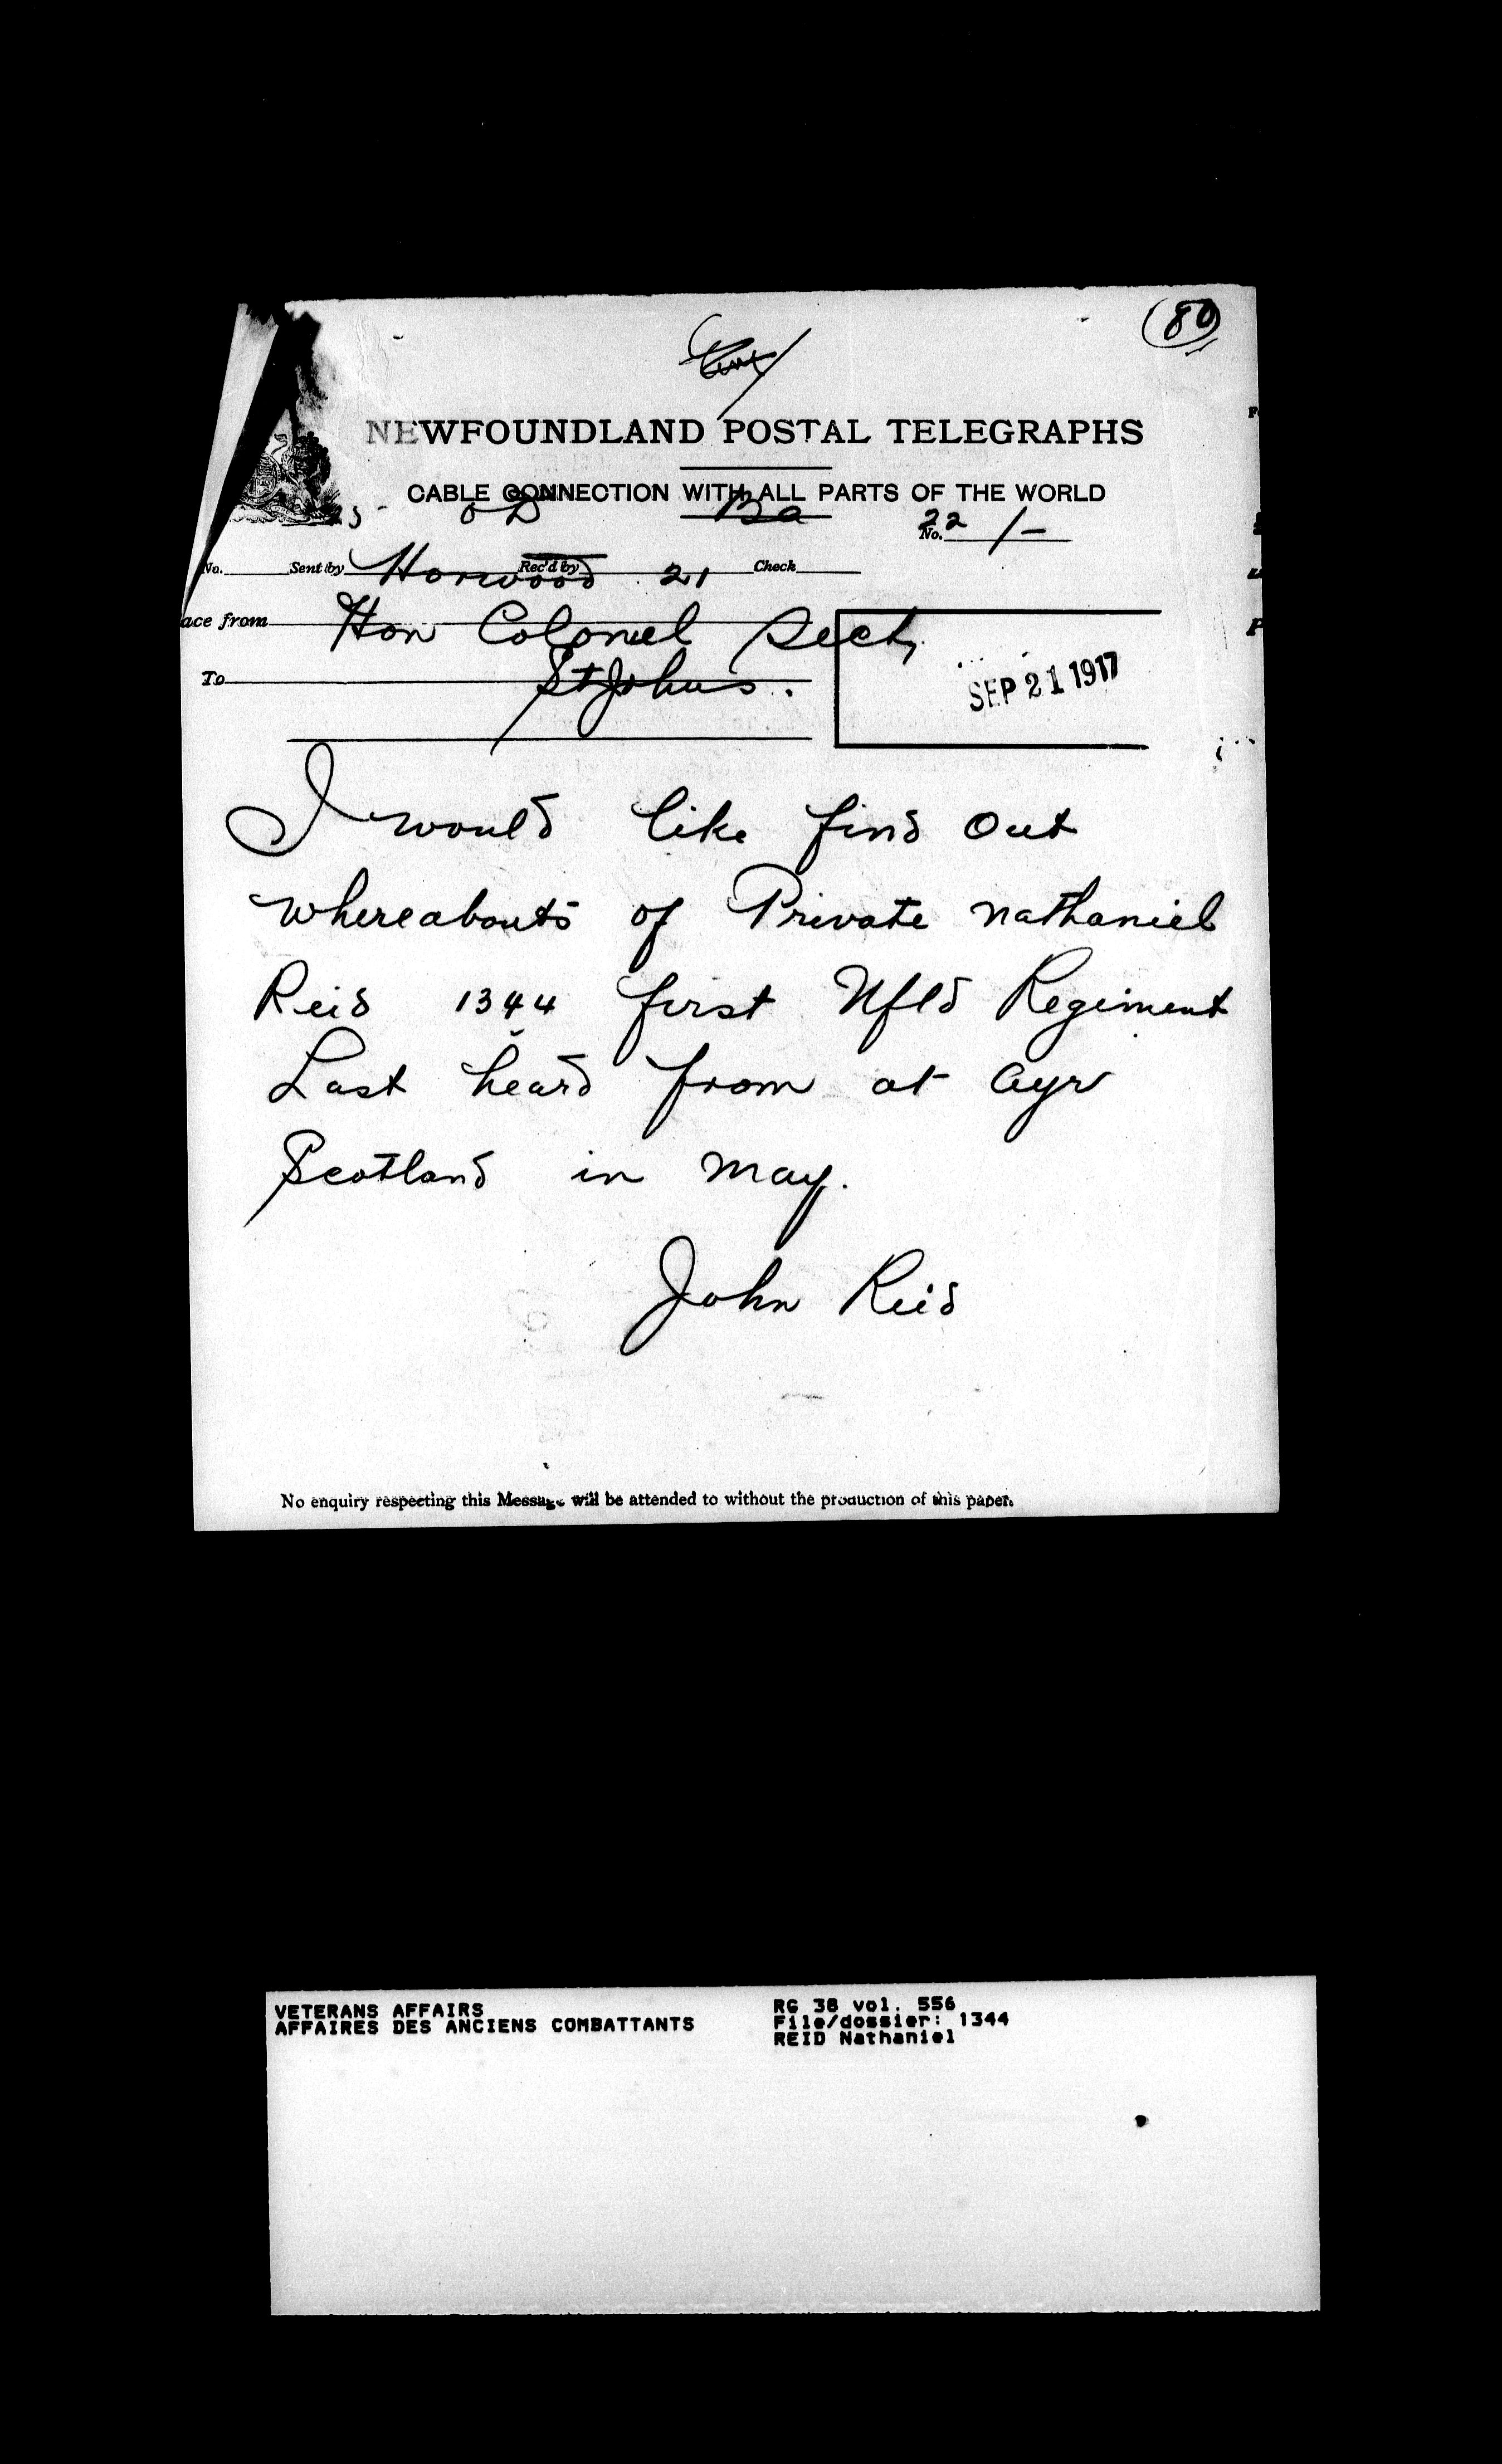 (80)
NEWFOUNDLAND POSTAL TELEGRAPHS
CABLE CONNECTION WITH ALL PARTS OF THE WORLD
Ba
No. 22 1/-
No. Sent by Rec'd by Check
Horwood 21
ace from
Hon Colonel Secty
To
St Johns.
SEP 21 1917
I would like find out
whereabouts of Private Nathaniel
Reid 1344 first Nfld Regiment
Last heard from at Ayr
Scotland in May.
John Reid
No enquiry respecting this Message will be attended to without the production of this paper.
VETERANS AFFAIRS
AFFAIRES DES ANCIENS COMBATTANTS
RG 38 vol. 556
File/dossier: 1344
REID Nathaniel